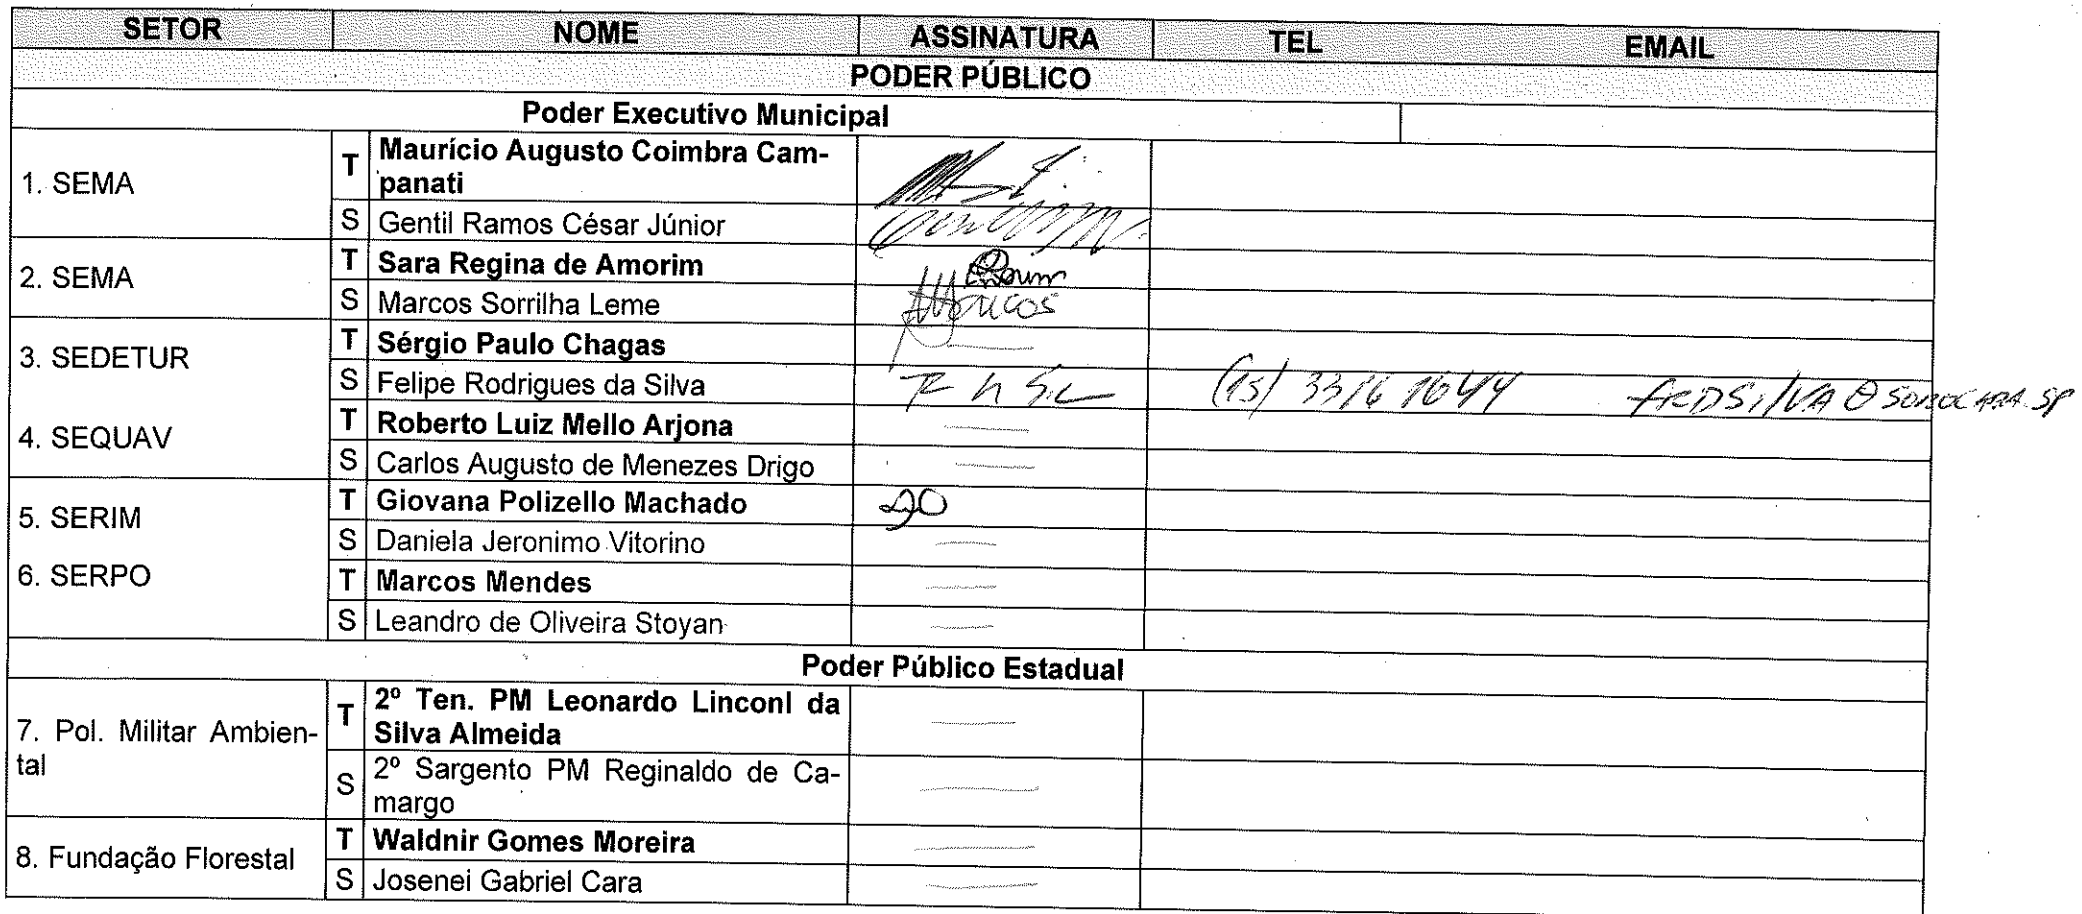 SETOR NOME ASSINATURA TEL EMAIL
PODER PÚBLICO
Poder Executivo Municipal
1. SEMA T Maurício Augusto Coimbra Cam-
panati
S Gentil Ramos César Júnior
2. SEMA T Sara Regina de Amorim
S Marcos Sorrilha Leme Marcos
3. SEDETUR T Sérgio Paulo Chagas
S Felipe Rodrigues da Silva (15) 3316 1644
4. SEQUAV T Roberto Luiz Mello Arjona
S Carlos Augusto de Menezes Drigo
5. SERIM T Giovana Polizello Machado
S Daniela Jeronimo Vitorino
6. SERPO T Marcos Mendes
S Leandro de Oliveira Stoyan
Poder Público Estadual
7. Pol. Militar Ambien-
tal
T 2º Ten. PM Leonardo Linconl da
Silva Almeida
S 2º Sargento PM Reginaldo de Ca-
margo
8. Fundação Florestal T Waldnir Gomes Moreira
S Josenei Gabriel Cara